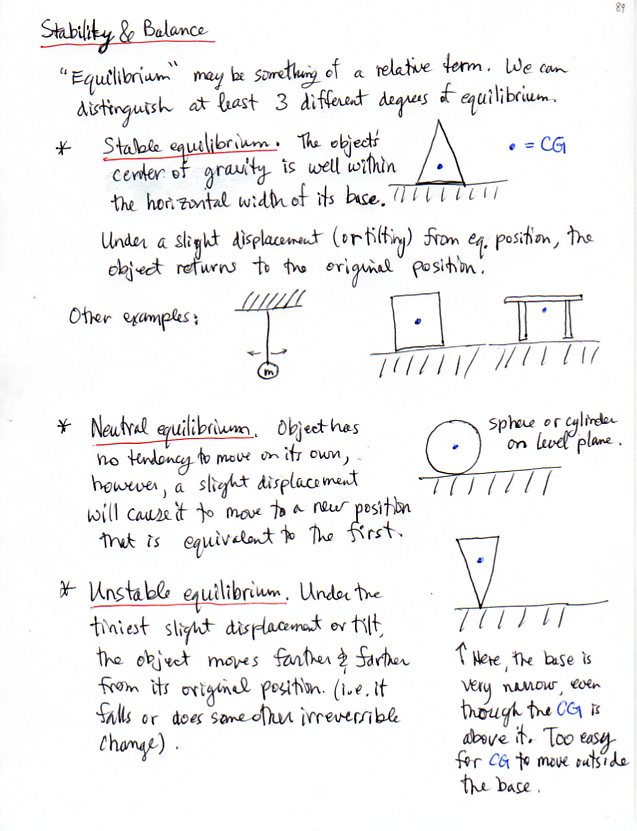 89
Stability & Balance
"Equilibrium" may be something of a relative term. We can
distinguish at least 3 different degrees of equilibrium.
* Stable equilibrium. The object's
center of gravity is well within
the horizontal width of its base.
• = CG
Under a slight displacement (or tilting) from eq. position, the
object returns to the original position.
Other examples:
m
* Neutral equilibrium. Object has
no tendency to move on its own,
however, a slight displacement
will cause it to move to a new position
that is equivalent to the first.
sphere or cylinder
on level plane.
* Unstable equilibrium. Under the
tiniest slight displacement or tilt,
the object moves farther & farther
from its original position. (i.e. it
falls or does some other irreversible
change).
↑ Here, the base is
very narrow, even
though the CG is
above it. Too easy
for CG to move outside
the base.